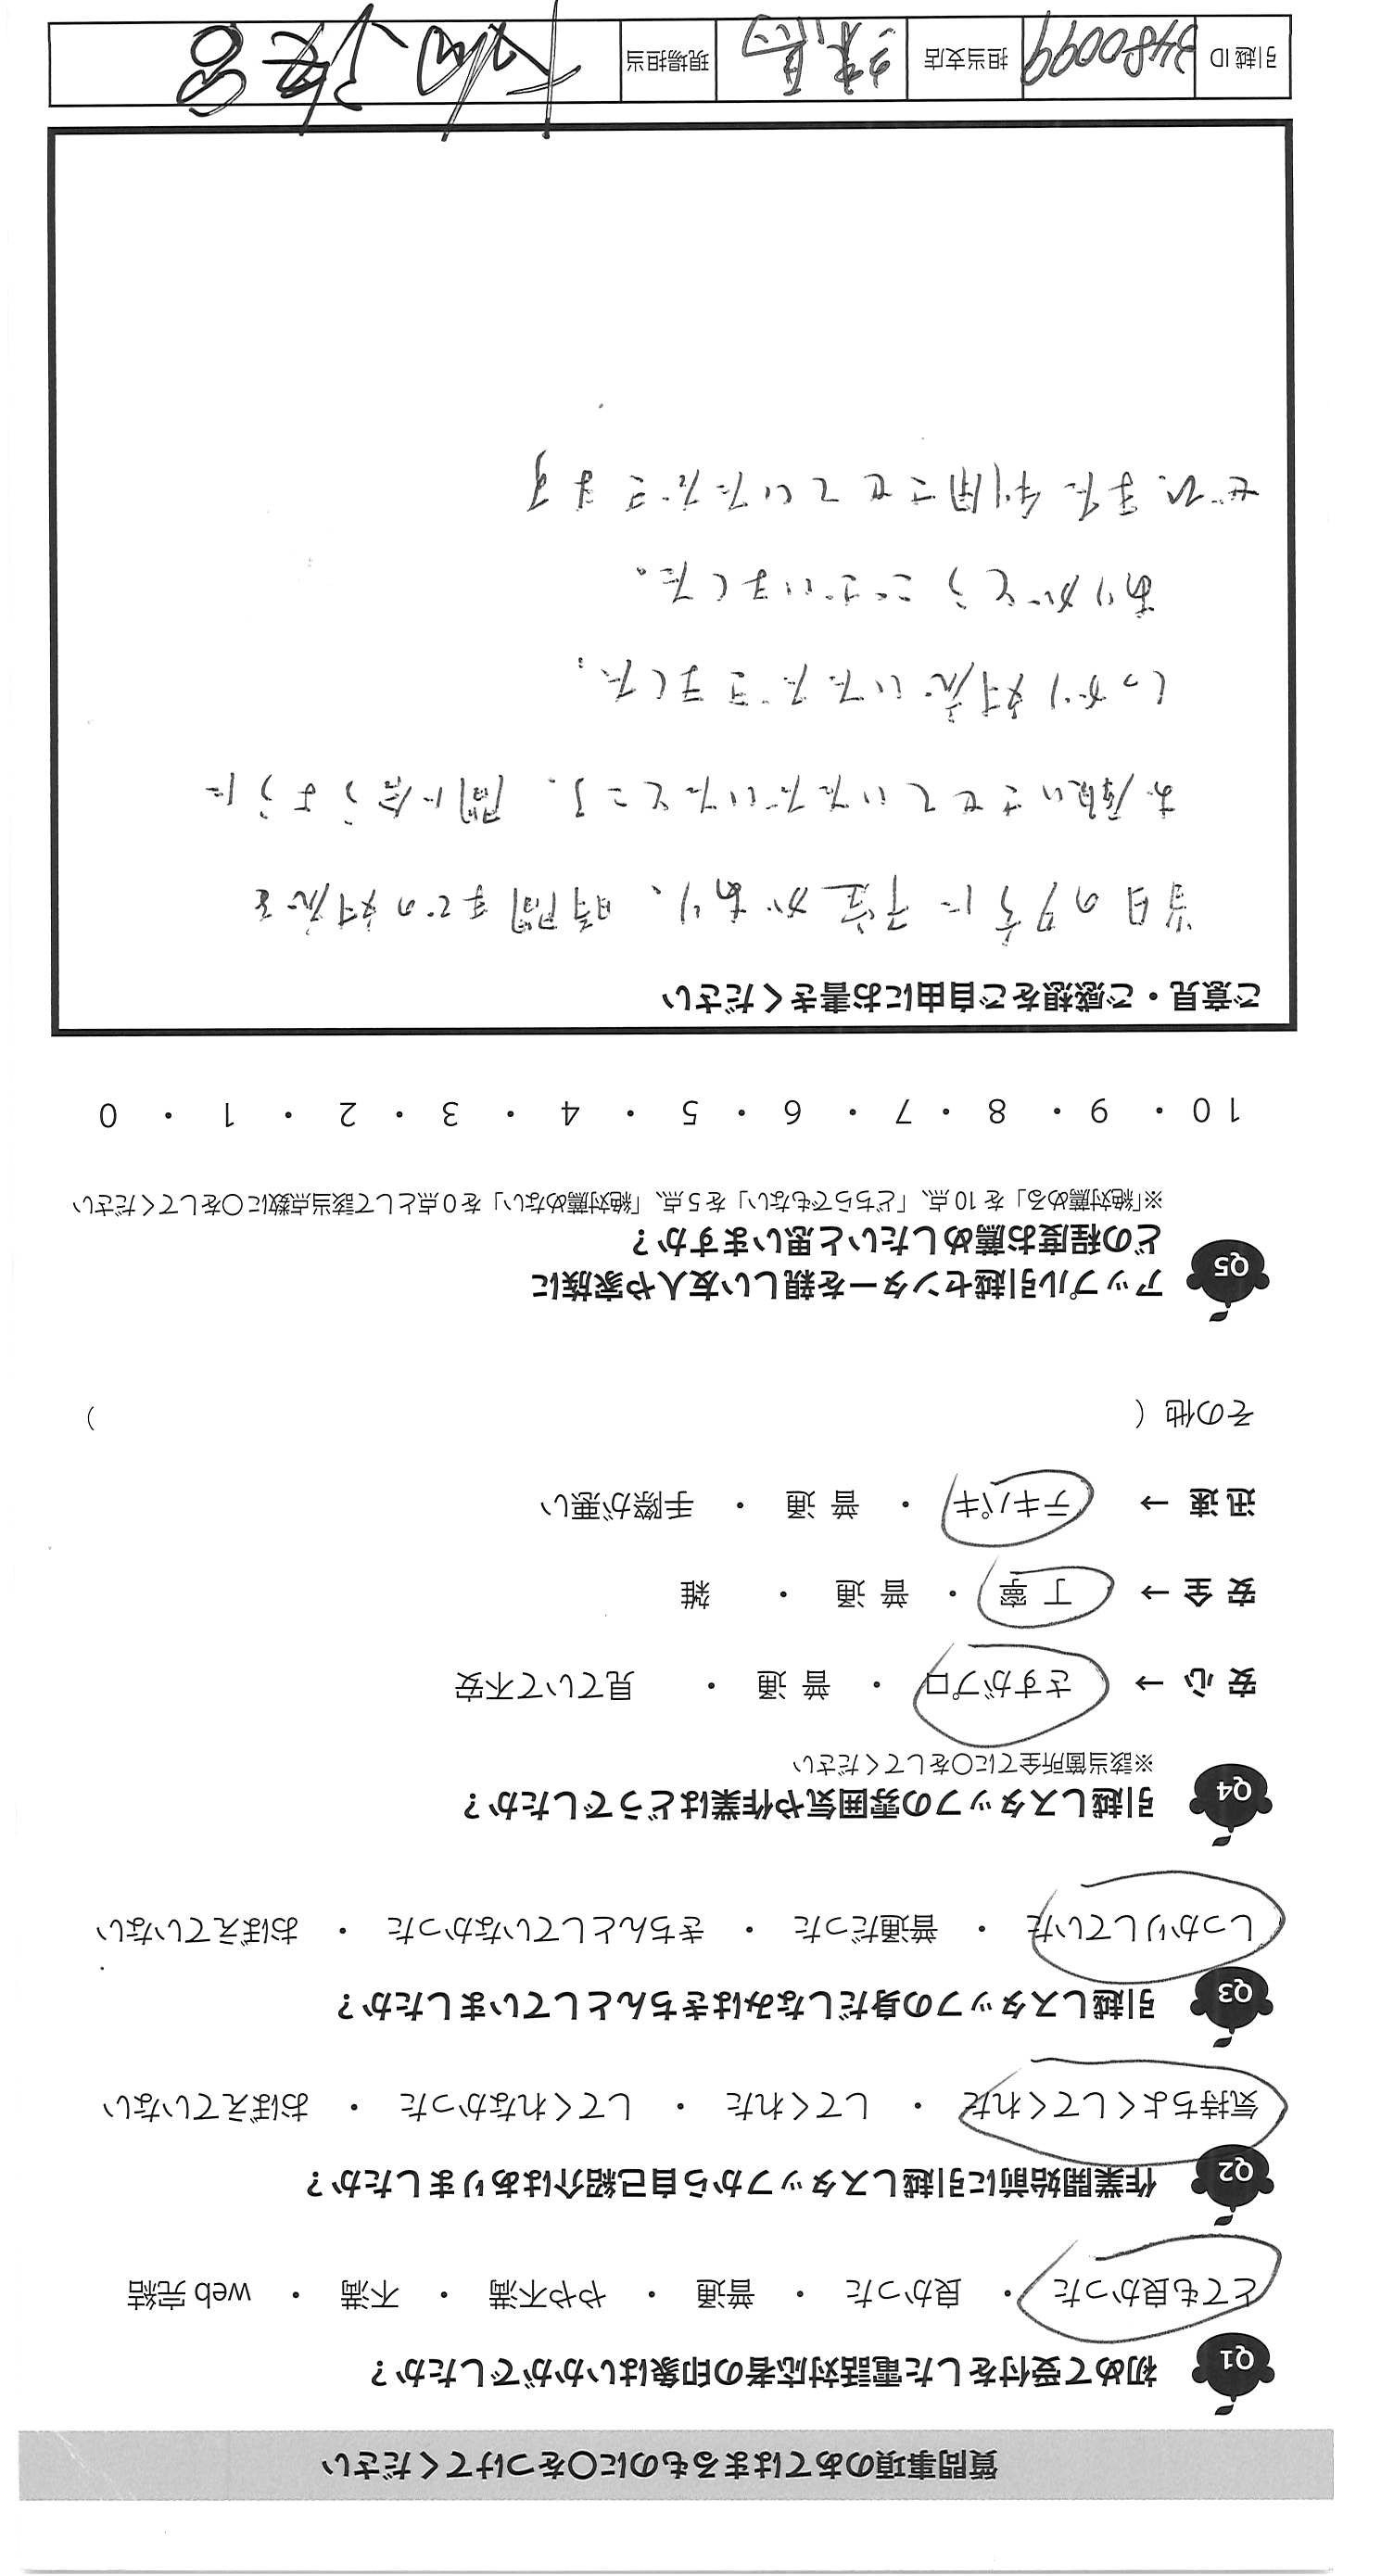 質問事項のあてはまるものに〇をつけてください
Q1 初めて受付をした電話対応者の印象はいかがでしたか？
とても良かった ・ 良かった ・ 普通 ・ やや不満 ・ 不満 ・ web 完結
Q2 作業開始前に引越しスタッフから自己紹介はありましたか？
気持ちよくしてくれた ・ してくれた ・ してくれなかった ・ おぼえていない
Q3 引越しスタッフの身だしなみはきちんとしていましたか？
しっかりしていた ・ 普通だった ・ きちんとしていなかった ・ おぼえていない
Q4 引越しスタッフの雰囲気や作業はどうでしたか？
※該当箇所全てに〇をしてください
安 心 → さすがプロ ・ 普 通 ・ 見ていて不安
安 全 → 丁 寧 ・ 普 通 ・ 雑
迅 速 → テキパキ ・ 普 通 ・ 手際が悪い
その他（ ）
Q5 アップル引越センターを親しい友人や家族に
どの程度お薦めしたいと思いますか？
※「絶対薦める」を 10 点、「どちらでもない」を 5 点、「絶対薦めない」を 0 点として該当点数に〇をしてください
10 ・ 9 ・ 8 ・ 7 ・ 6 ・ 5 ・ 4 ・ 3 ・ 2 ・ 1 ・ 0
ご意見・ご感想をご自由にお書きください
当日の夕方に予定があり、時間までの対応を
お願いさせていただいたところ、間に合うように
しっかり対応いただきました。
ありがとうございました。
ぜひまた利用させていただきます
引越 ID 3480099 担当支店 練馬 現場担当